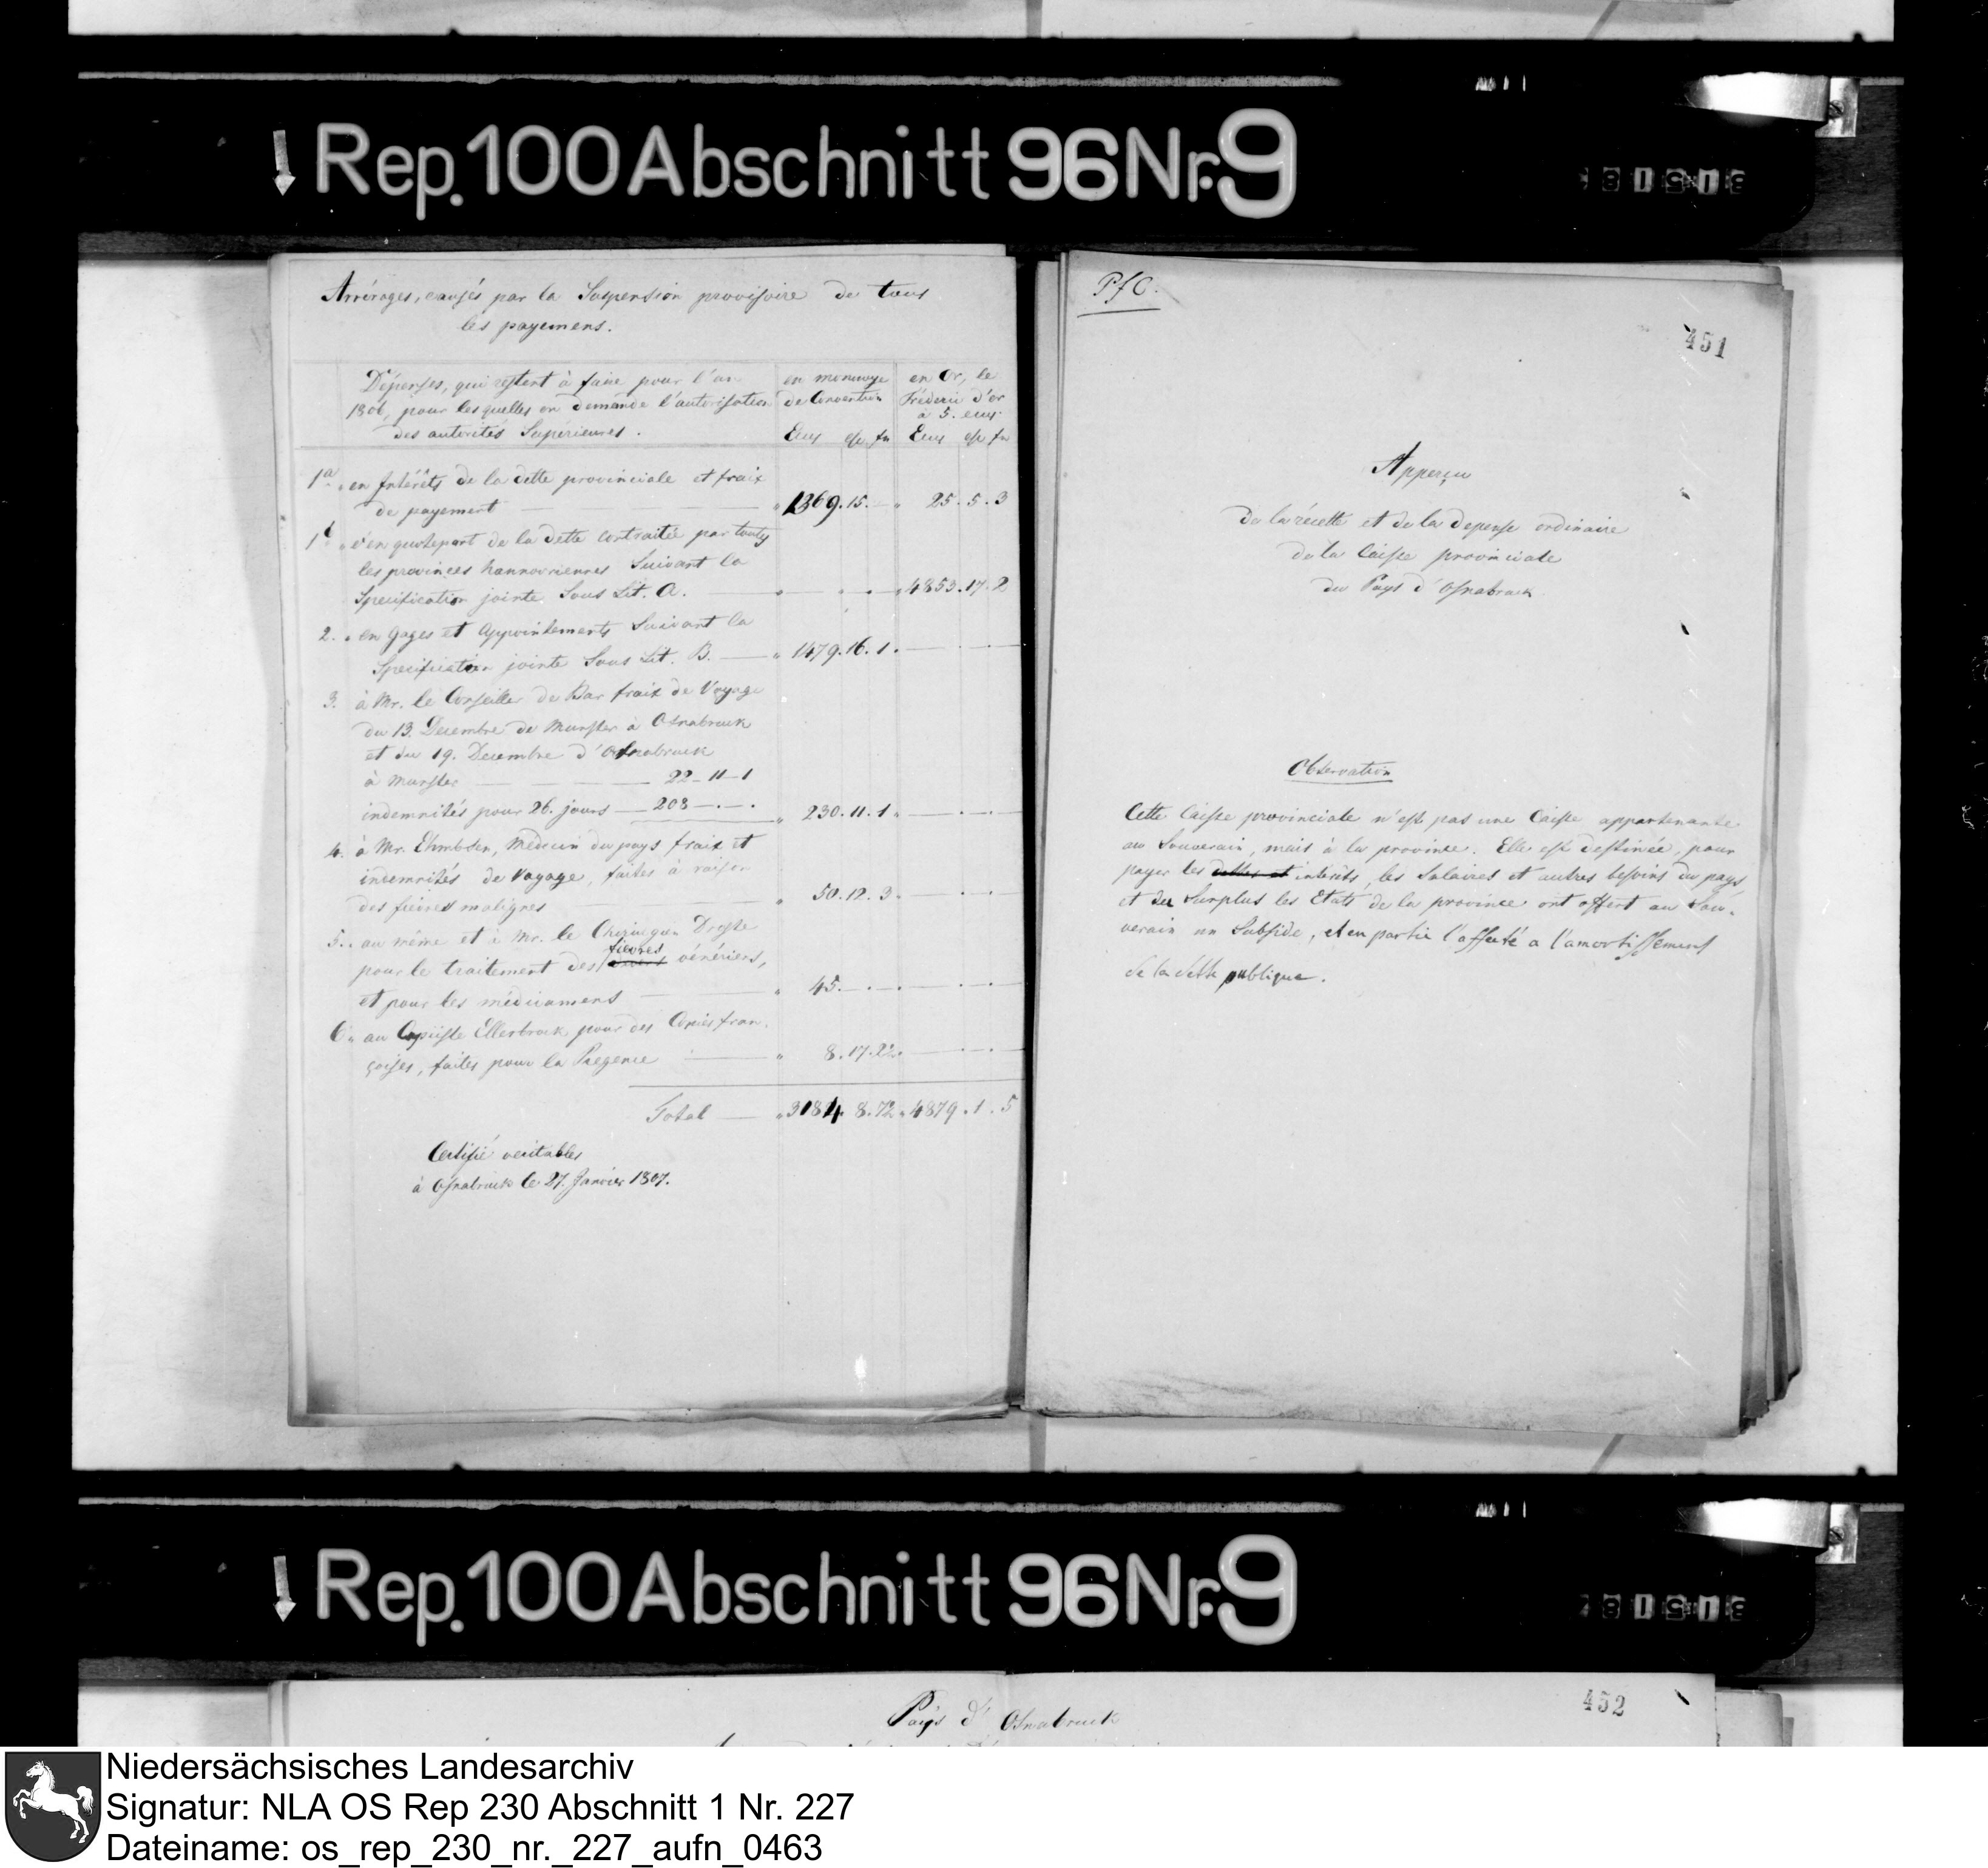 Rep. 100 Abschnitt 96 Nr. 9
Arrérages, causés par la Suspension provisoire de tous
les payemens.
Dépenses, qui restent à faire pour l'an
1806, pour lesquelles on demande l'autorisation
des autorités Supérieures.
en monnoye
de Convention
Ecus
en Or, le
Frideric d'or
à 5. ecus.
Ecus
1a en Intérêts de la dette provinciale et fraix
de payement 1369. 15. — 25. 5. 3
1b en quotepart de la dette contractée par toutes
les provinces hannovriennes Suivant la
Specification jointe Sous Lit. A. 4853. 17. 2
2. en Gages et Appointements Suivant la
Specification jointe Sous Lit. B. — 1479. 16. 1.
3. à Mr. le Conseiller de Bar fraix de Voyage
du 13. Decembre de Munster à Osnabruck
et du 19. Decembre d'Osnabruck
à Munster — 22-11-1
indemnités pour 26. jours — 208 — 230. 11. 1
4. à Mr. Ehmbsen, Médecin du pays fraix et
indemnités de Voyage, faites à raison
des fievres malignes 50. 12. 3.
5. au même et à Mr. le Chirurgien Droste
fievres
pour le traitement des vénériens,
et pour les médicamens 45.
6. au Copiiste Ellerbrock, pour des Copies fran-
çoises, faites pour la Regence 8. 17.
Total — 3184. 8. 4879. 1. 5
Certifié veritables
à Osnabruck le 27. Janvier 1807.
451
Apperçu
De la récette et de la depense ordinaire
de la Caisse provinciale
du Pays d'Osnabruck
Observation
Cette Caisse provinciale n'est pas une Caisse appartenante
au Souverain, mais à la province. Elle est destinée, pour
payer les dettes et interêts, les Salaires et autres besoins du pays
et du Surplus les Etats de la province ont offert au Sou-
verain un Subside, et en partie l'affecté a l'amortissement
de la dette publique.
Rep. 100 Abschnitt 96 Nr. 9
452
Pays d'Osnabruck
Niedersächsisches Landesarchiv
Signatur: NLA OS Rep 230 Abschnitt 1 Nr. 227
Dateiname: os_rep_230_nr._227_aufn_0463